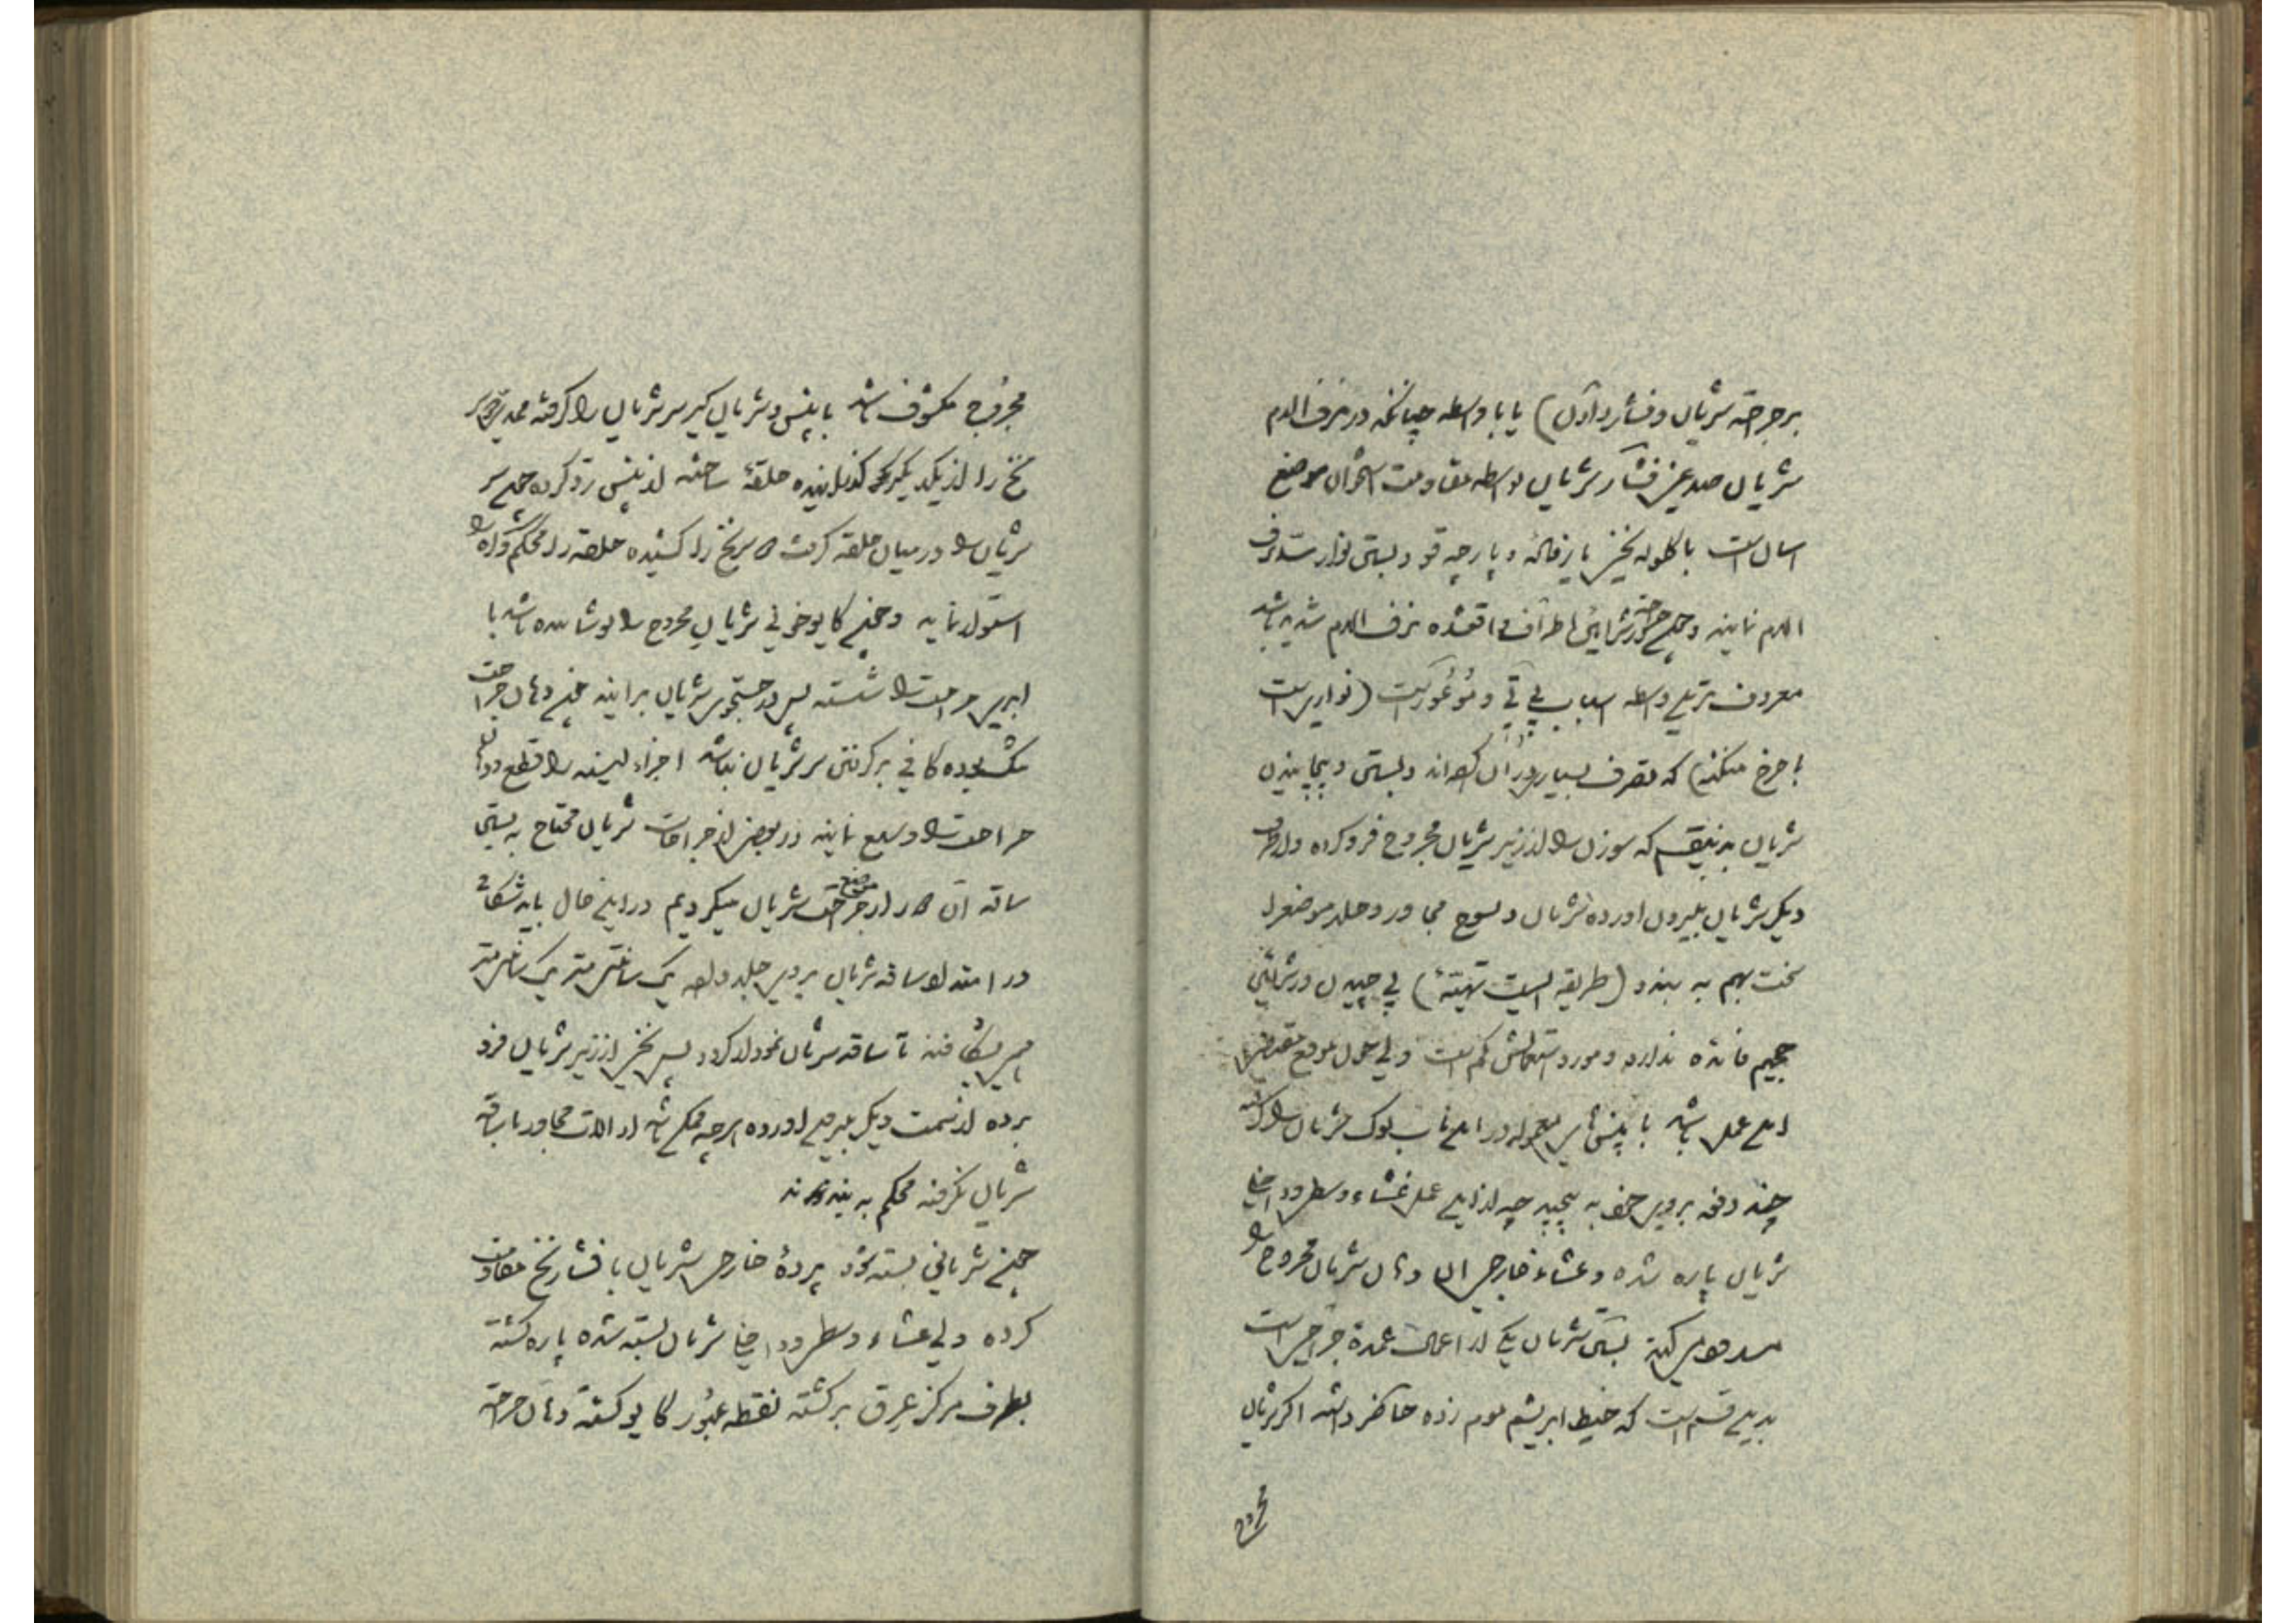 بر جراحت شریان و فشار دادن) یا با واسطه چنانکه در نزف الدم
شریان صدغی فشار شریان بواسطه مقاومت استخوان موضع
اسان است با کلوله نخی یا زغاله و پارچه قو و بستن نوار سد نزف
الدم نمایند و چون شرایین اطراف واقعشده نزف الدم شدید باشد
معروف بترین واسطه اسباب پی تی و مُوغُورکیت (نواریست
با چرخ میکنند) که تصرف بسیار در آن کرده‌اند و بستن و پیچانیدن
شریان بدینقسم که سوزن را از زیر شریان مجروح فرو کرده و از طرف
دیکر شریان بیرون اورده شریان و نسوج مجاور و جلد موضع را
سخت بهم به بندد (طریقه) پی چیدن در شرائین
حجیم فائده ندارد و مورد استعمالش کم است ولی چون موقع مقتضی
این عمل باشد با پنس های معموله در این باب نوک شریان را گرفته
چند دفعه بروی خود به پیچید چه از این عمل غشاء وسطی و داخلی
شریان پاره شده و غشاء خارجی ان دهان شریان مجروح را
مسدود می کند بستن شریان یکی از اعمال عمدۀ جراحی است
بدین قسم است که خیط ابریشم موم زده حاضر داشته اکر شریان
مجروح
مجروح مکشوف باشد با پنس و شریان کیر سر شریان را کرفته ممد دو سر
نخ را از یکدیکر کذرانیده حلقۀ ساخته از پنس رد کرده چون سر
شریان را در میان حلقه کرفت دو سر نخ را کشیده حلقه را محکم کره را
استوار نماید و چون کایو خونی شریان مجروح را پوشانیده باشد با
ابری جراحت را شسته پس در جستجوی شریان برایند چون دهان جراحت
تنک بوده کافی بر کرفتن سر شریان نباشد اجزاء لینه را قطع و دهان
جراحت را وسیع نمایند در بعضی از جراحات شریان محتاج به بستن
ساقه ان دور از موضع جراحت شریان میکردیم در این حال باید شکافی
در امتداد ساقه شریان بروی جلد داده یک سانتی متر یک سانتی متر
می بشکافند تا ساقه شریان نمودار کردد پس نخی از زیر شریان فرو
برده از سمت دیکر بیرون اورده هرچه ممکن باشد از الات مجاور با ساقه
شریان نکرفته محکم به بندند
چون شریانی بسته شود پردۀ خارجی شریان با فشار نخ مقاومت
کرده ولی غشاء وسطی و داخلی شریان بسته شده پاره کشته
بطرف مرکز عرق برکشته نقطه عبور کایو کشته دهان جراحت